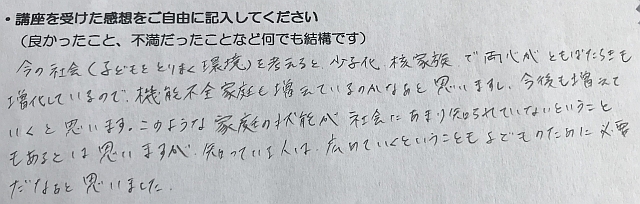 ・講座を受けた感想をご自由に記入してください
（良かったこと、不満だったことなど何でも結構です）
今の社会（子どもをとりまく環境）を考えると、少子化、核家族、で両心がともばたらきも
増化しているので、機能不全家庭も増えているのかなぁと思いますし、今後も増えて
いくと思います。このような家庭の状態が社会にあまり知られていないということ
もあるとは思いますが、知っている人は、広めていくということも子どものために必要
だなぁと思いました。